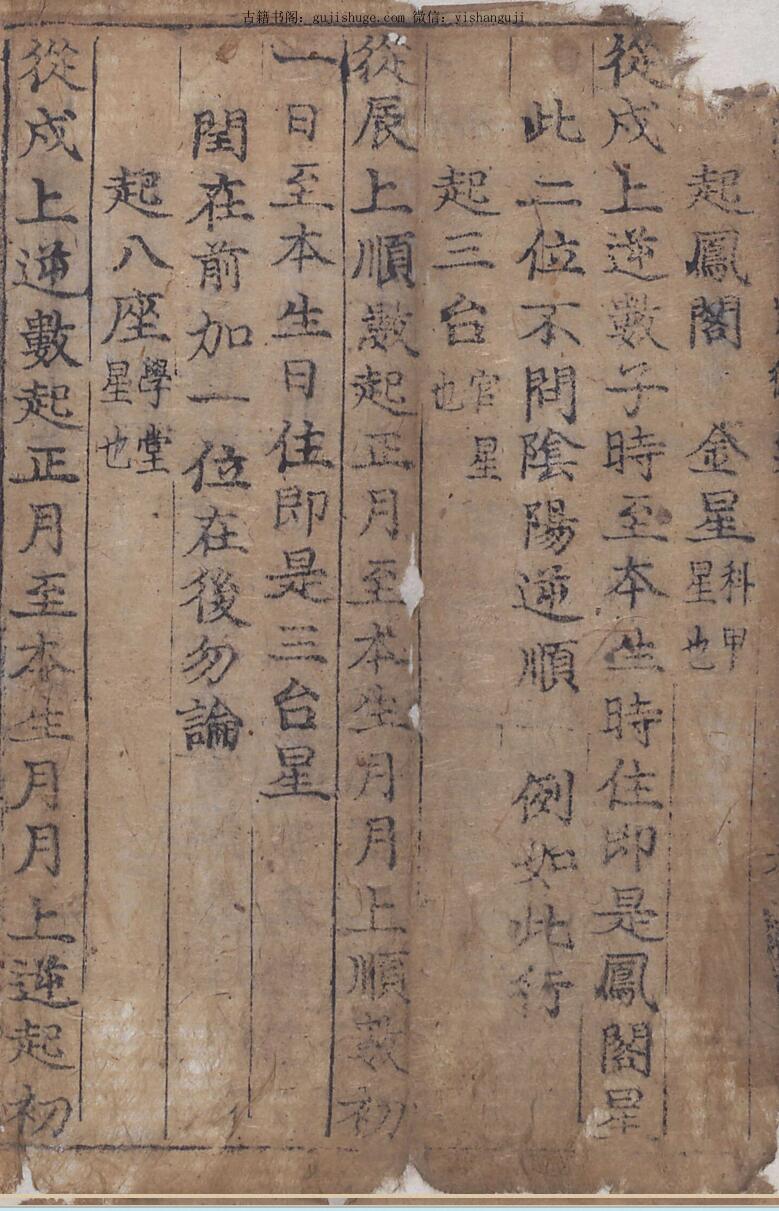 古籍书阁：gujishuge.com 微信：yishanguji
起鳳閣 金星科甲星也
從戌上逆數子時至本生時住即是鳳閣星
此二位不問陰陽逆順一例如此行
起三台官星也
從辰上順數起正月至本生月月上順數初
一日至本生日住即是三台星
閏在前加一位在後勿論
起八座學堂星也
從戌上逆數起正月至本生月月上逆起初